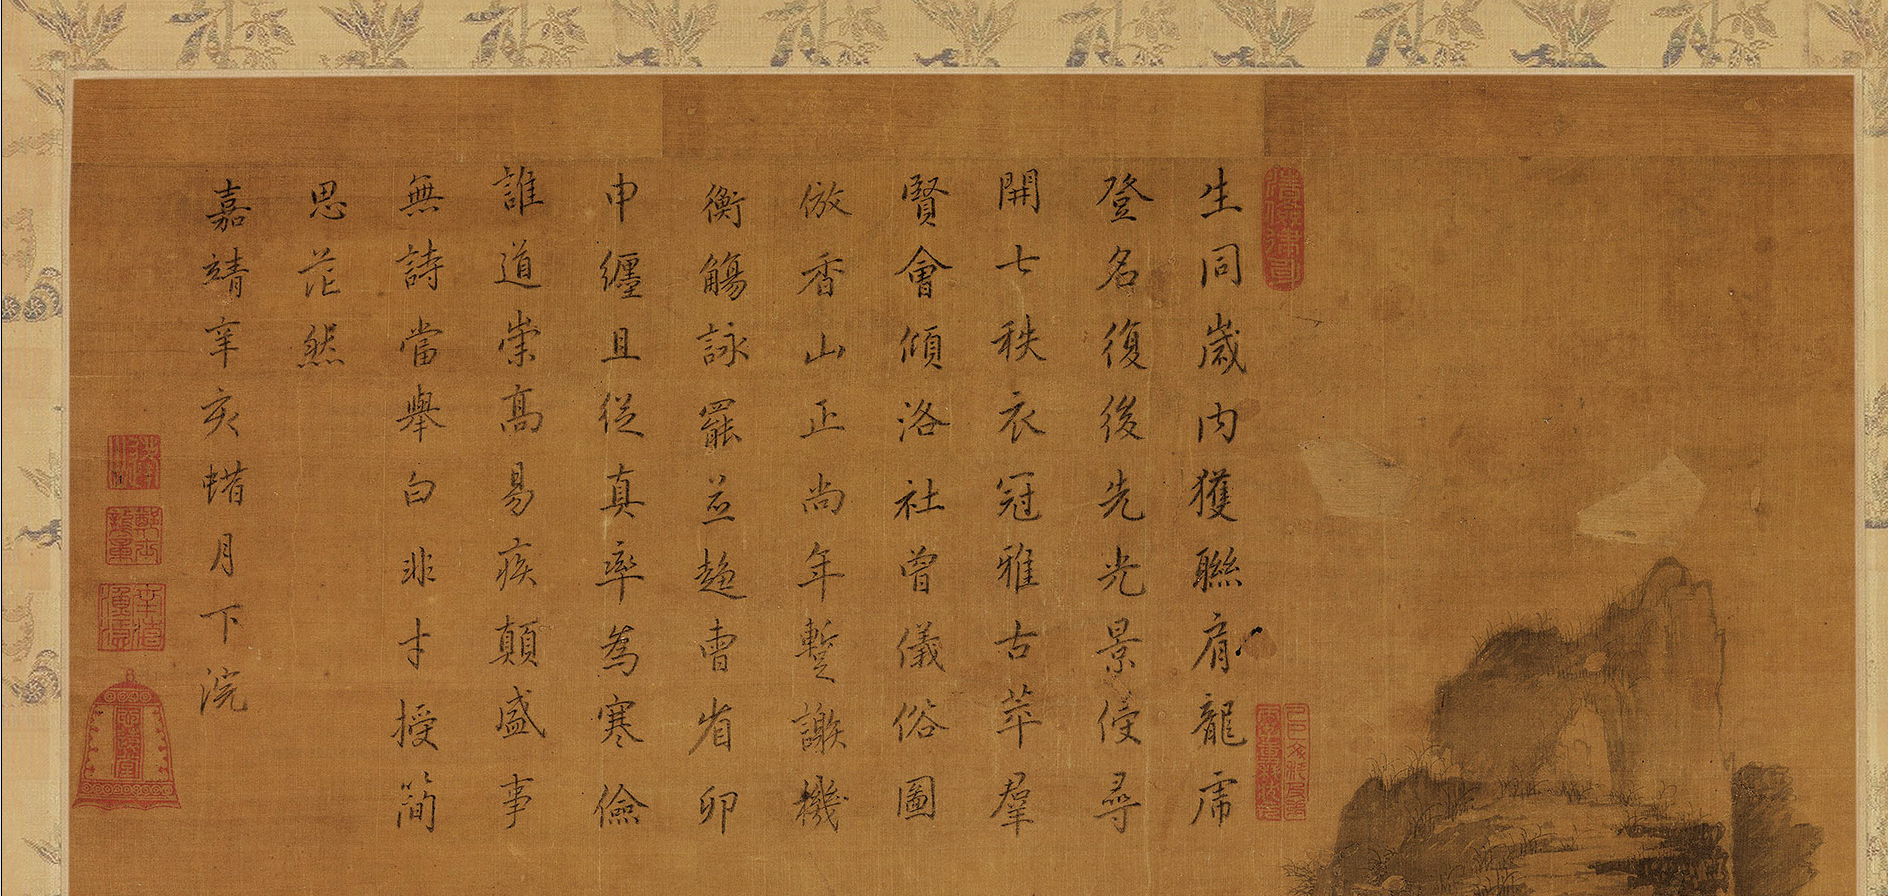 生同歲內獲聯肩龍虎
登名復後先光景侵尋
開七秩衣冠雅古萃羣
賢會傾洛社曾儀俗圖
倣香山正尚年蹔謝機
衡觴詠罷並趨曹省卯
申纏且從真率為寒儉
誰道崇高易疾顛盛事
無詩當舉白非才授簡
思茫然
嘉靖辛亥蜡月下浣